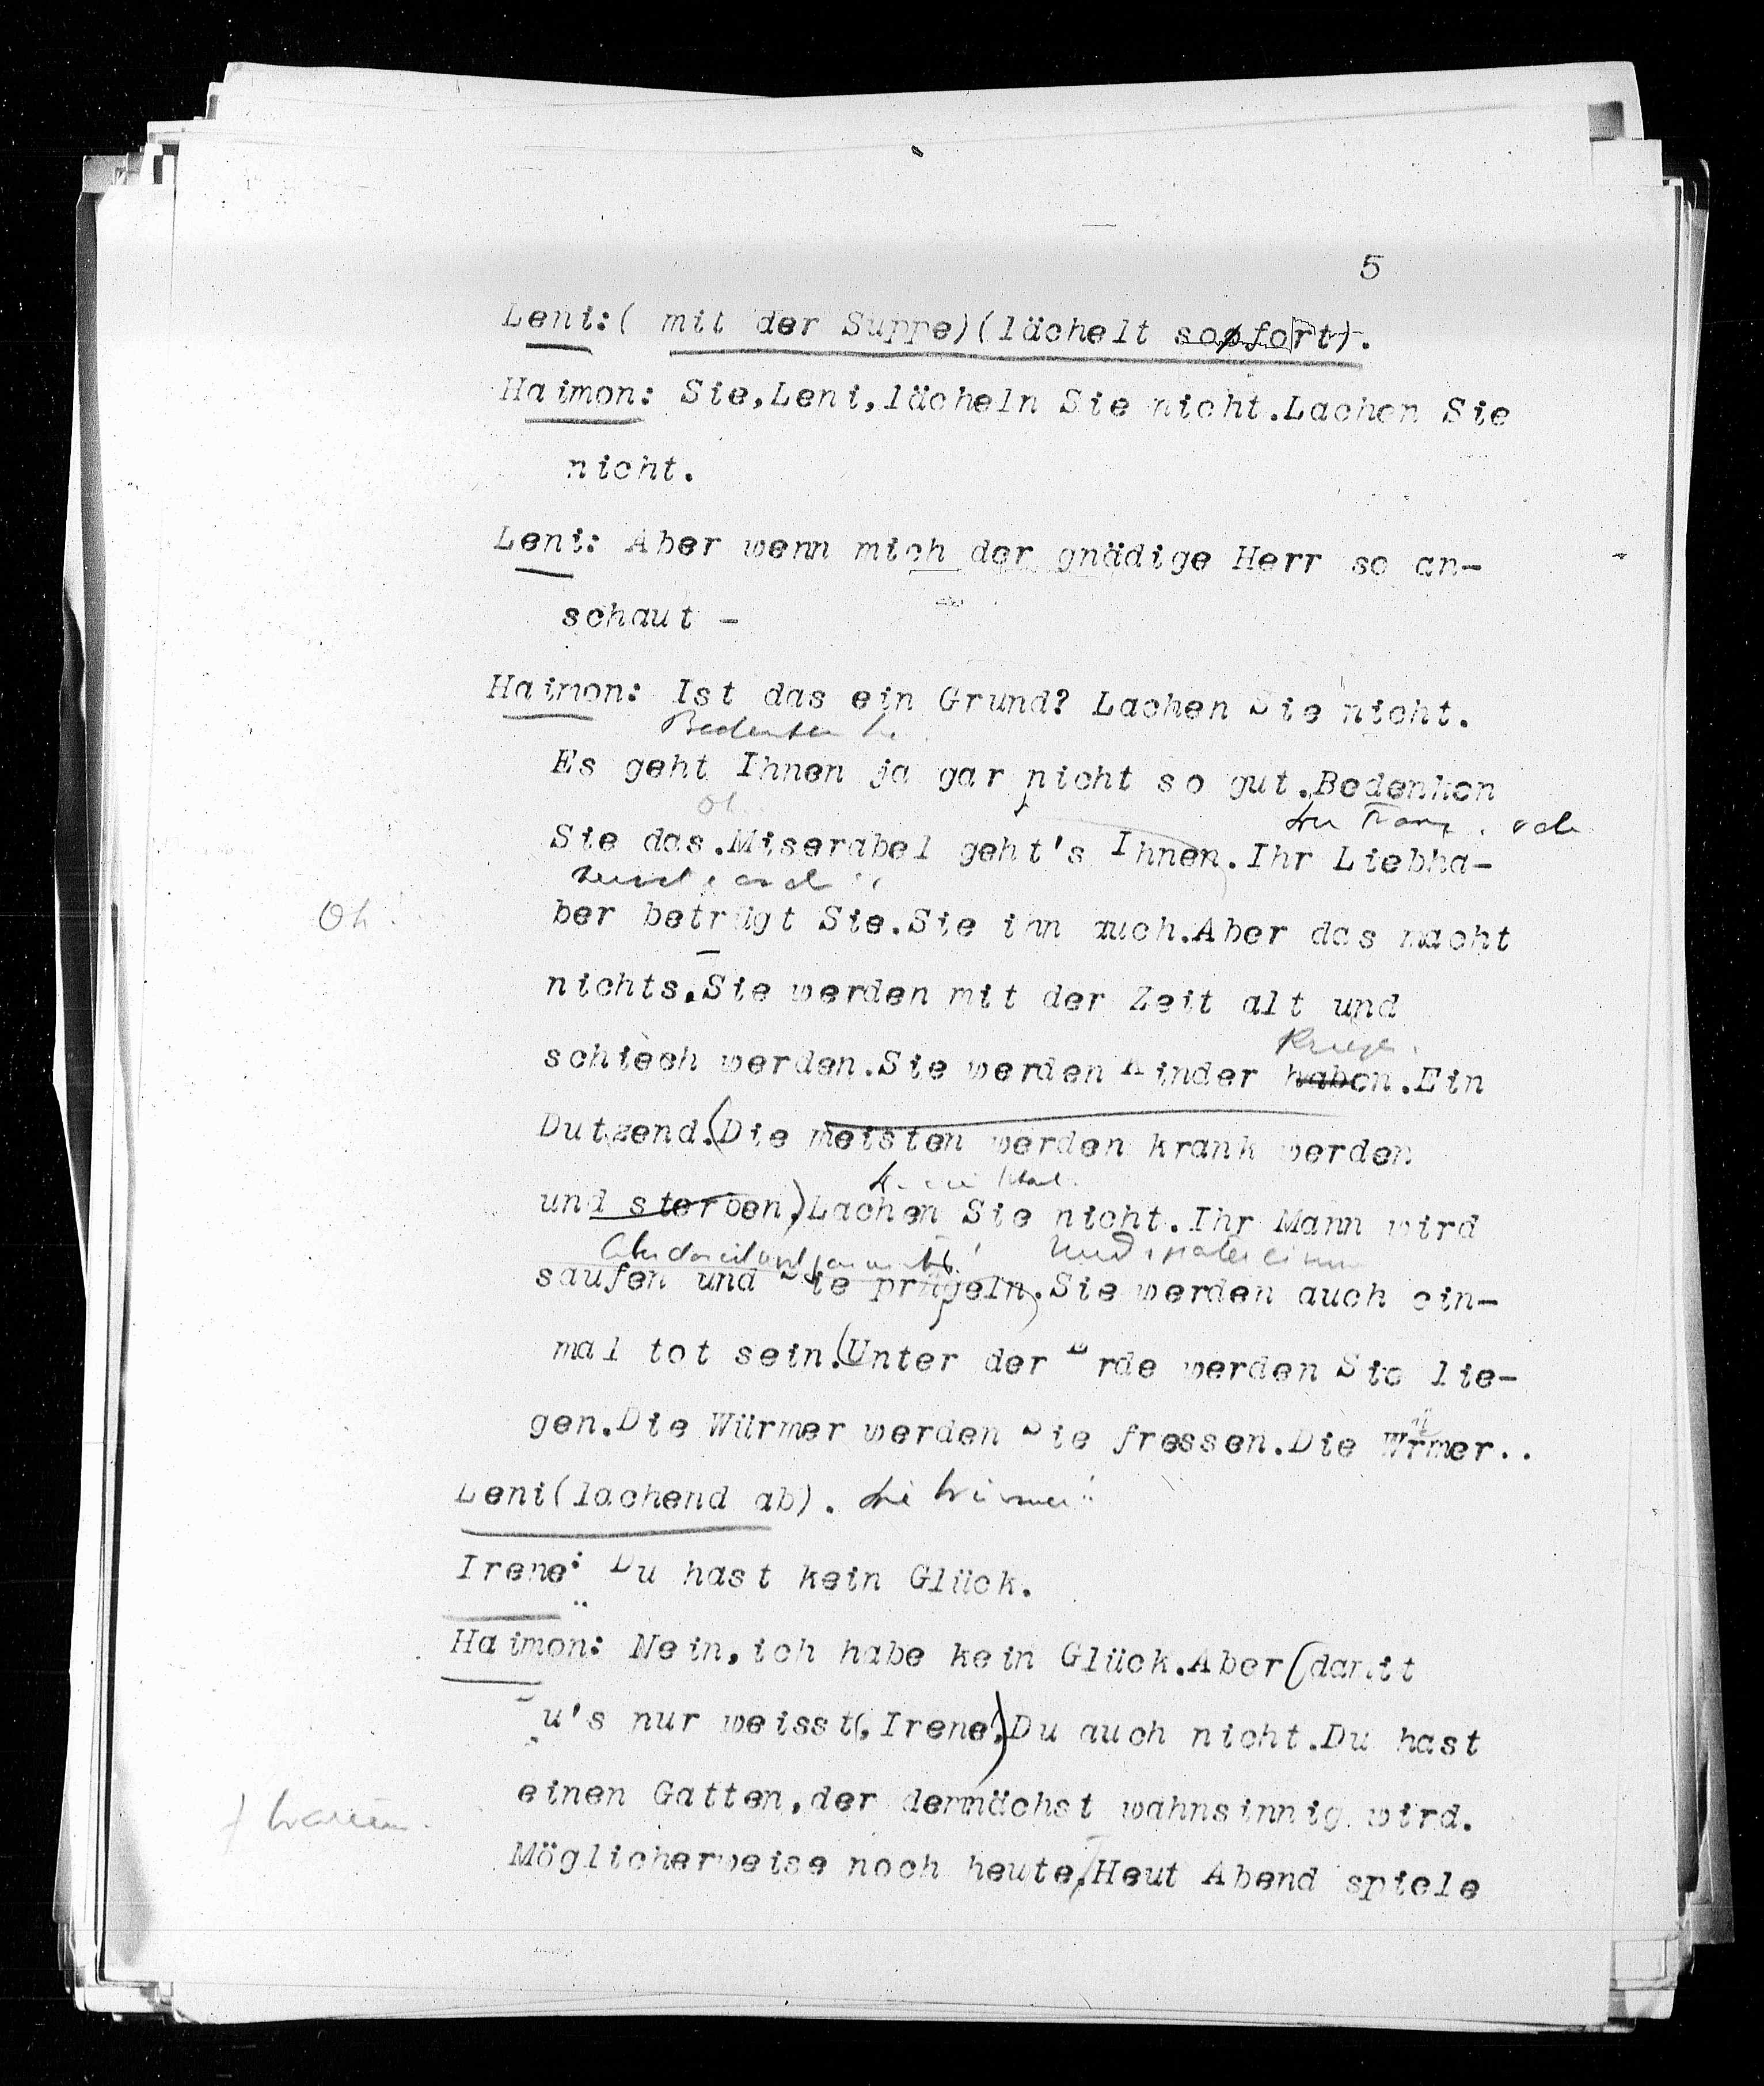 5
Leni:( mit der Suppe)(lächelt sopfort).
Haimon: Sie,Leni,lächeln Sie nicht.Lachen Sie
nicht.
Leni: Aber wenn mich der gnädige Herr so an-
schaut -
Haimon: Ist das ein Grund? Lachen Sie nicht.
Es geht Ihnen ja gar nicht so gut.Bedenken
Sie das.Miserabel geht's Ihnen.Ihr Liebha-
Oh!
ber betrügt Sie.Sie ihn auch.Aber das macht
nichts.Sie werden mit der Zeit alt und
schiech werden.Sie werden Kinder haben.Ein
Dutzend.(Die meisten werden krank werden
und sterben.)Lachen Sie nicht.Ihr Mann wird
saufen und Sie prügeln.Sie werden auch ein-
mal tot sein.(Unter der Erde werden Sie lie-
gen.Die Würmer werden Sie fressen.Die Würmer..
Leni(lachend ab). Die Würmer!
Irene: Du hast kein Glück.
Haimon: Nein,ich habe kein Glück.Aber(damit
Du's nur weisst(,Irene,)Du auch nicht.Du hast
einen Gatten,der demnächst wahnsinnig wird.
Möglicherweise noch heute.Heut Abend spiele